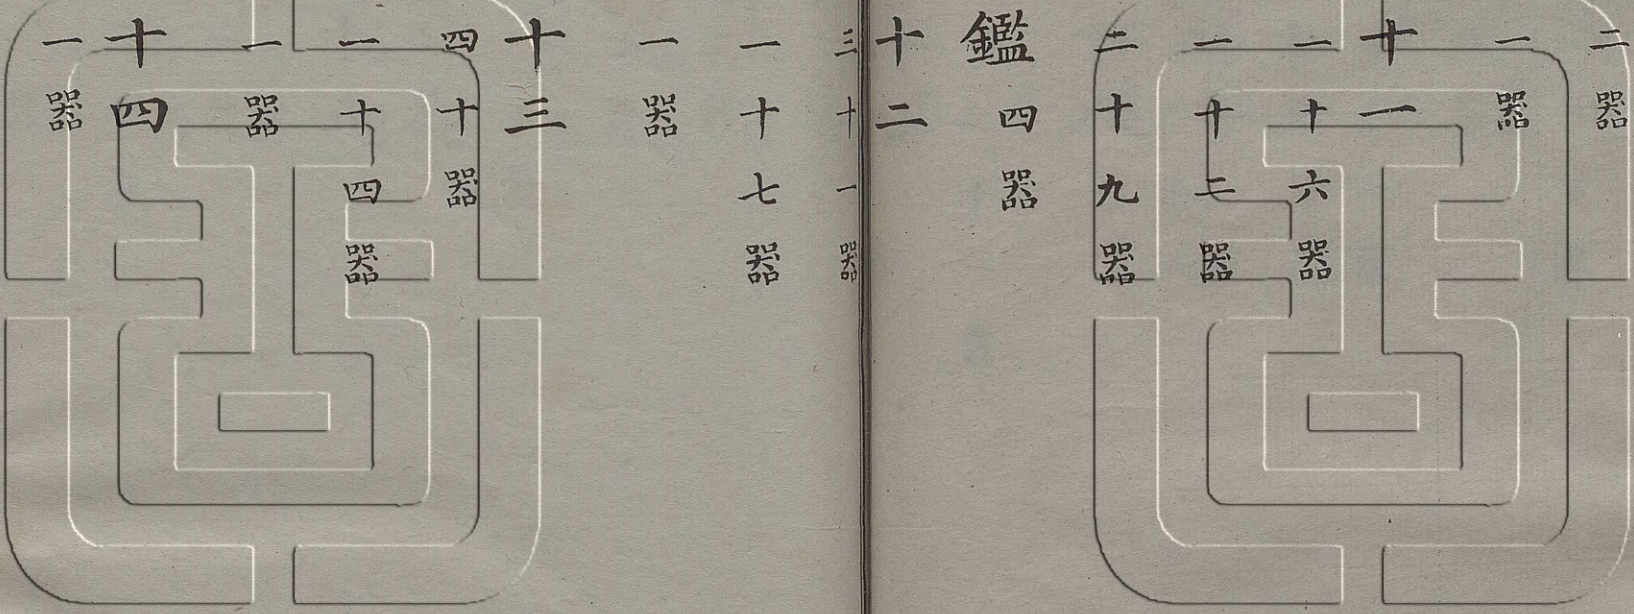 二器
一器
十一
一十六器
一十二器
二十九器
鑑四器
十二
三十一器
一十七器
一器
十三
四十器
一十四器
一器
十四
一器